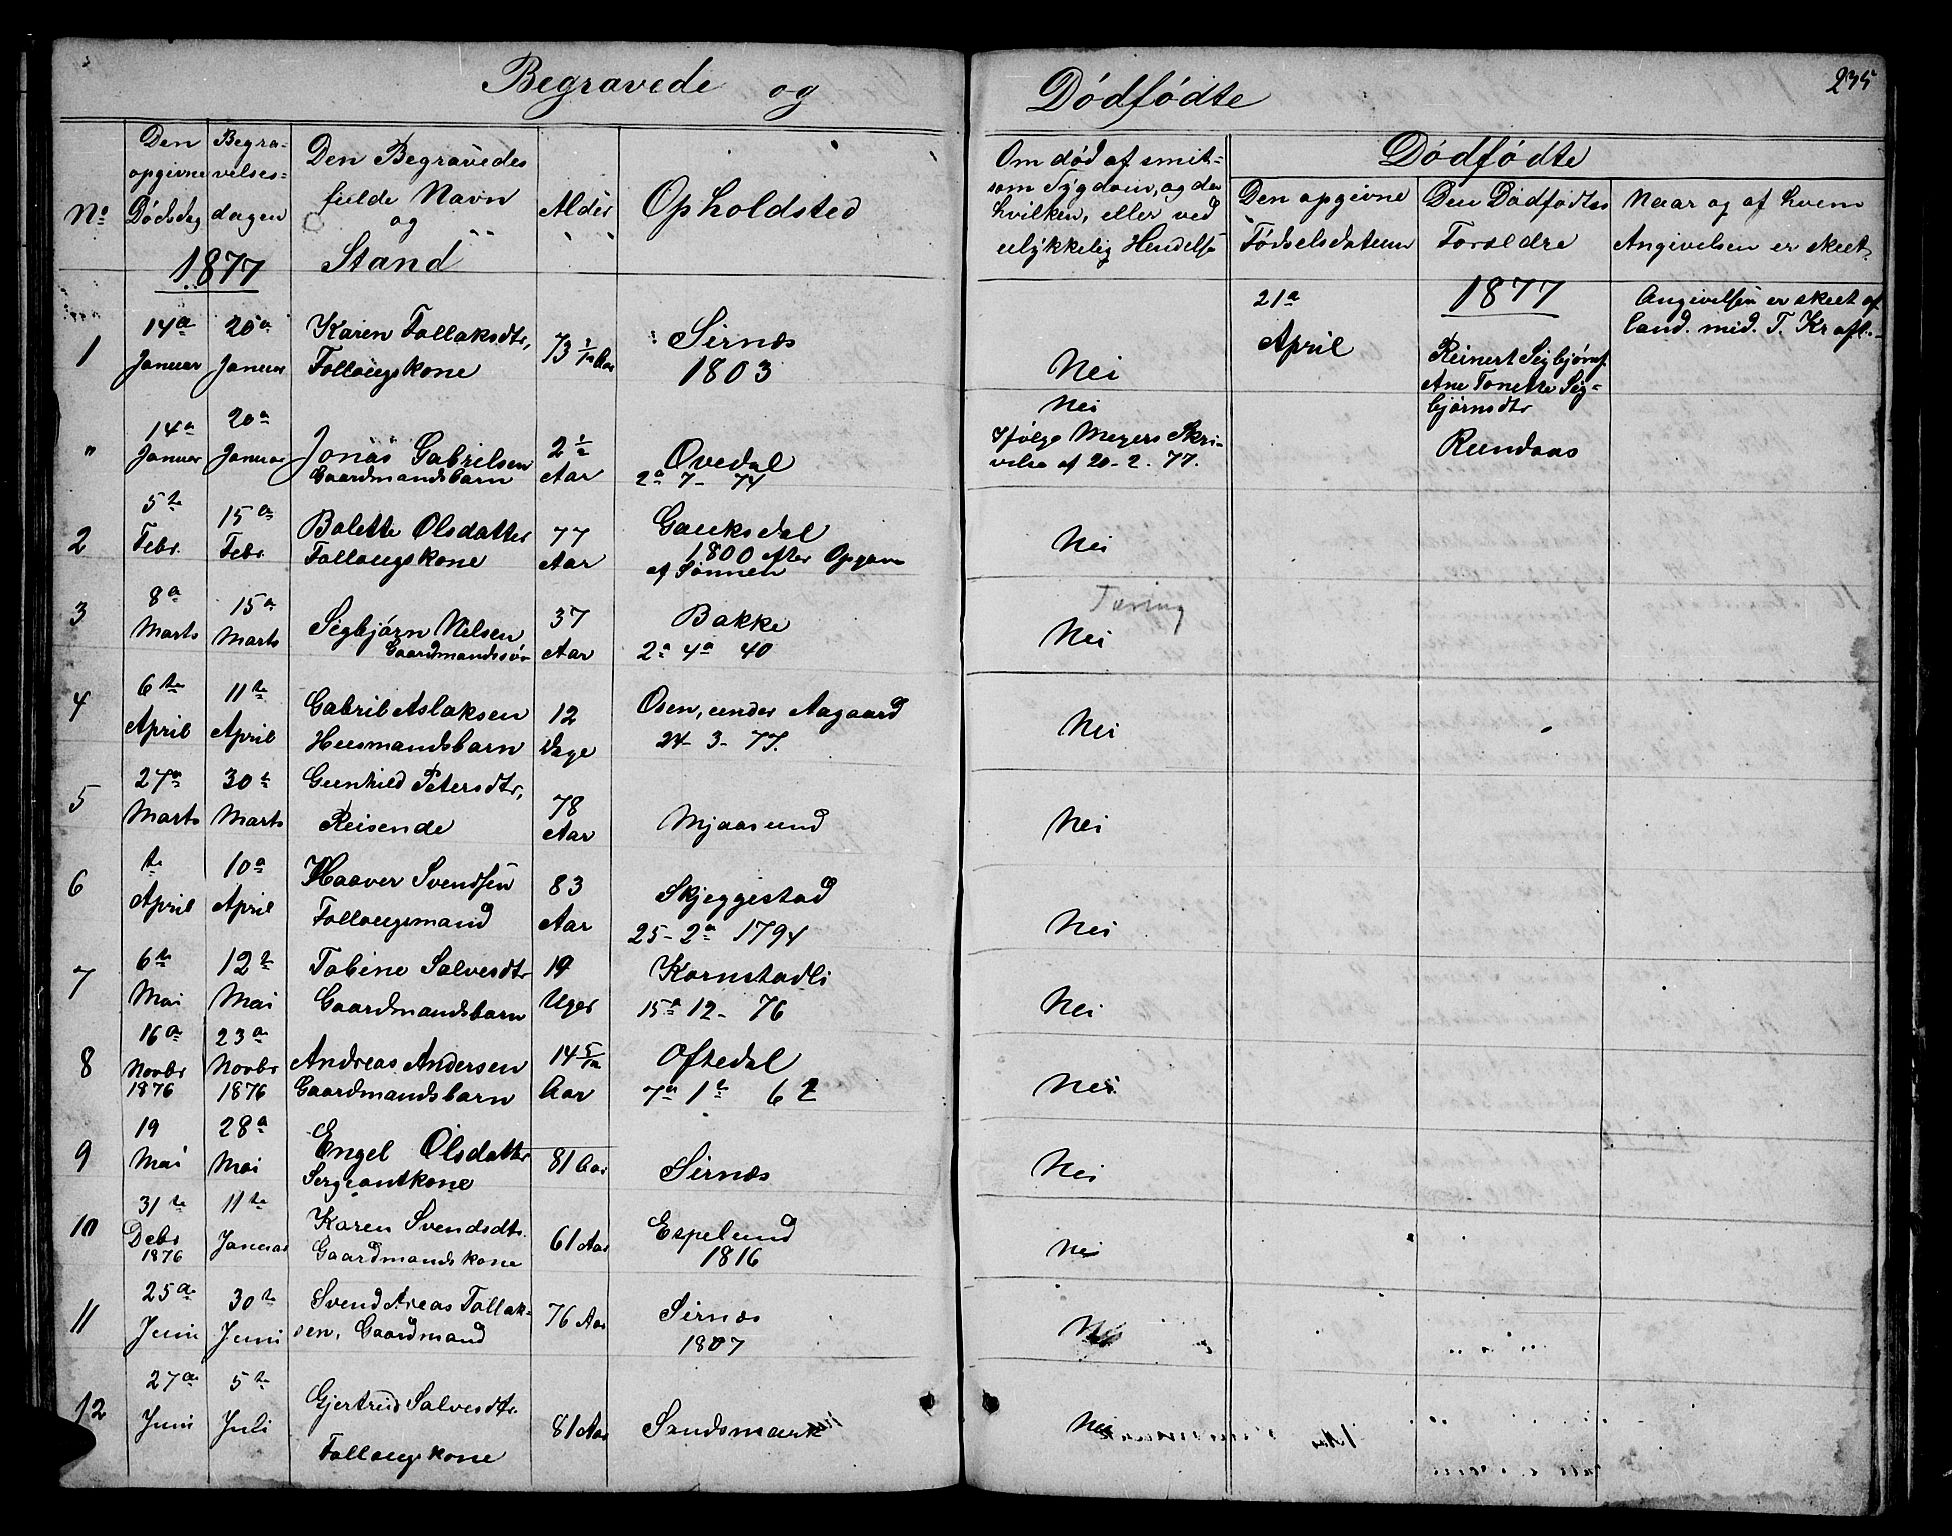 Begravede og Dödfödte
235
No
Den opgivne Dödsdag
Begravelses-dagen
Den Begravedes fulde Navn og Stand
Alder
Opholdsted
Om död af smit-
som Sygdom, og da
hvilken, eller ved
ulykkelig Hendelse
Dödfödte
Den opgivne Födselsdatum
Den Dödfödtes Forældre
Naar og af hvem
Angivelsen er skeet
1877
1 14a Januar 20a Januar Karen Tollaksdtr, Follougskone 73 Aar Sirnæs 1803 Nei
21a April
1877
Reinert Sigbjörns.
Ane Tonette Sig-
björnsdtr
Rundaas
Angivelsen er skeet af
land. med. T. Krafl.
" 14a Januar 20a Januar Jonas Gabrilsen Gaardmandsbarn 2 1/2 Aar Ovedal 2a 7- 74 Nei
Ifölge Meyers Skri-
velse af 20-2. 77.
2 5te Febr. 15a Febr. Bolette Olsdatter Follougskone 77 Aar Gauksdal 1800 efter Opgave af Sönnen Nei
3 8a Marts 15a Marts Sigbjörn Nilsen Gaardmandssön 37 Aar Bakke 2a 4a 40 Tæring Nei
4 6te April 11te April Gabril Aslaksen Huusmandsbarn 12 Dage Osen, under Aagaard 24- 3- 77. Nei
5 27a Marts 30te Marts Gunhild Petersdtr, Reisende 78 Aar Mjaasund Nei
6 te April 10a April Haaver Svendsen Follougsmand 83 Aar Skjeggestad 25- 2a 1794 Nei
7 6te Mai 12te Mai Tobine Salvesdtr Gaardmandsbarn 19 Uger Kornstadli 15a 12- 76 Nei
8 16a Novbr 1876 23a Novbr 1876 Andreas Andersen Gaardmandsbarn 14 5/12 Aar Oftedal 7a 1te 62 Nei
9 19 Mai 28a Mai Engel Olsdatter Sergeantkone 81 Aar Sirnæs Nei
10 31te Debr 1876 11te Januar Karen Svendsdtr. Gaardmandskone 61 Aar Espelund 1816 Nei
11 25a Juni 30te Juni Svend Areas Tollak-
sen, Gaardmand 76 Aar Sirnæs 1807 Nei
12 27a Juni 5te Juli Gjertrud Salvesdtr. Follougskone 81 Aar Sandsmark Nei